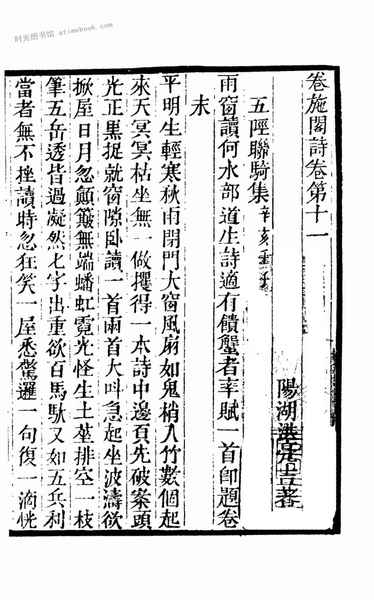 时光图书馆 atimebook.com
卷施閣詩卷第十一
陽湖洪亮吉著
五陘聯騎集 辛亥壬子
雨窗讀何水部道生詩適有饋蟹者率賦一首卽題卷
末
平明生輕寒秋雨閉門大窗風扇如鬼梢入竹數個起
來天冥冥枯坐無一做攫得一本詩中邊頁先破案頭
光正黑捉就窗隙臥讀一首兩首大叫急起坐波濤欲
掀屋日月忽顛簸無端蟠虹霓光怪生土莝排空一枝
筆五岳透皆過凝然七字出重欲百馬馱又如五兵利
當者無不挫讀時忽狂笑一屋悉驚邏一句復一滴恍